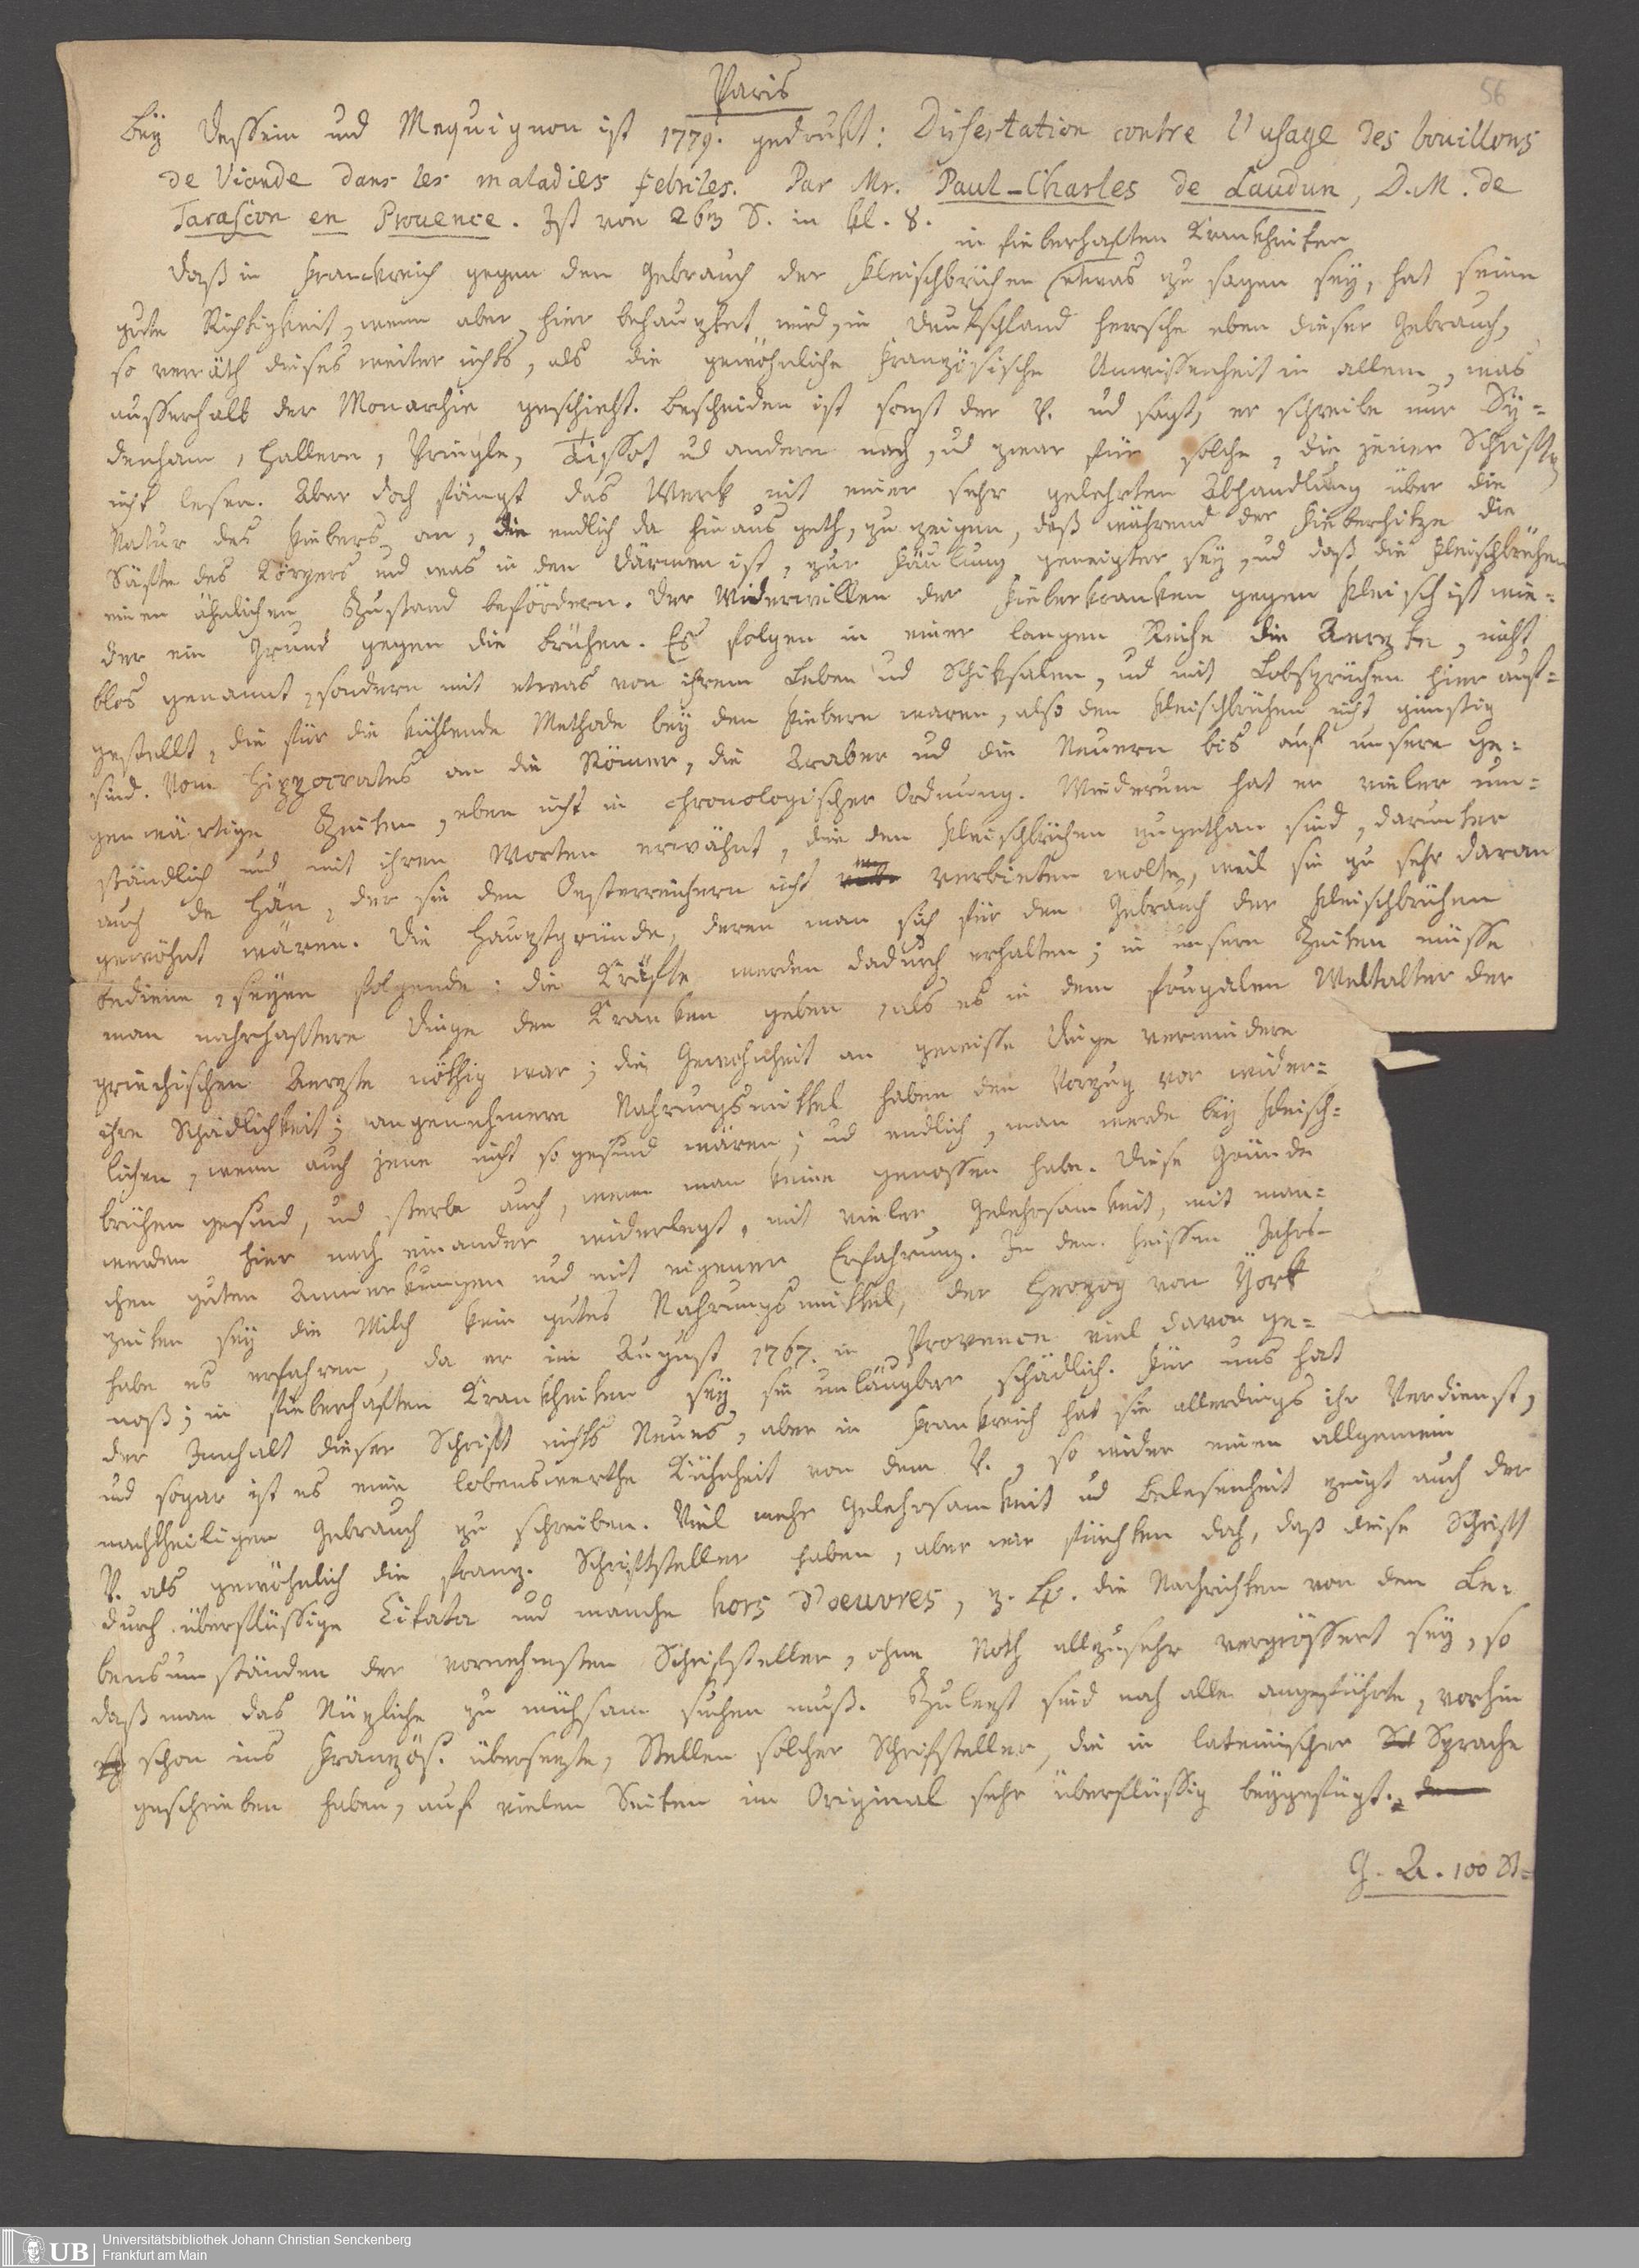 56
Paris
Bey Dessein und Mequignon ist 1779. gedrukt: Dissertation contre l'usage des bouillons
de Viande dans les maladies febriles. Par Mr. Paul-Charles de Laudun, D. M. de
Tarascon en Provence. Ist von 263 S. in kl. 8.
in fieberhaften Krankheiten
Daß in Frankreich gegen den Gebrauch der Fleischbrühen etwas zu sagen sey, hat seine
gute Richtigkeit, wenn aber hier behauptet wird, in Deutschland herrsche eben dieser Gebrauch,
so verräth dieses weiter nichts, als die gewöhnliche Französische Unwissenheit in allem, was
ausserhalb der Monarchie geschieht. Bescheiden ist sonst der V. ud sagt, er schreibe nur Sy=
denham, Hallern, Pringle, Tissot ud andern nach, ud zwar für solche, die jener Schriften
nicht lesen. Aber doch fängt das Werk mit einer sehr gelehrten Abhandlung über die
Natur des Fiebers an, die endlich da hinaus geth, zu zeigen, daß während der Fieberhitze die
Säfte des Körpers und was in den Därmen ist, zur Fäulung geneigter sey, ud daß die Fleischbrühen
einen ähnlichen Zustand befördern. Der Widerwillen der Fieberkranken gegen Fleisch ist wie=
der ein Grund gegen die Brühen. Es folgen in einer langen Reihe die Aerzte, nicht
blos genannt, sondern mit etwas von ihrem Leben ud Schiksalen, ud mit Lobsprüchen hier auf=
gestellt, die für die kühlende Methode bey den Fiebern waren, also den Fleischbrühen nicht günstig
sind. Vom Hippocrates an die Römer, die Araber ud die Neuern bis auf unsere ge=
genwärtige Zeiten, eben nicht in chronologischer Ordnung. Wiederum hat er vieler um=
ständlich und mit ihren Worten erwähnt, die den Fleischbrühen zugethan sind, darunter
auch de Haen, der sie den Oesterreichern nicht verbieten wolte, weil sie zu sehr daran
gewöhnt wären. Die Hauptgründe, deren man sich für den Gebrauch der Fleischbrühen
bediene, seyen folgende: die Kräfte werden dadurch erhalten; in unsern Zeiten müsse
man nahrhaftere Dinge den Kranken geben, als es in dem frugalen Weltalter der
griechischen Aerzte nöthig war; die Gewohnheit an gewisse Dinge vermindere
ihre Schädlichkeit; angenehmere Nahrungsmittel haben den Vorzug vor wider=
lichen, wenn auch jene nicht so gesund wären; ud endlich, man werde bey Fleisch=
brühen gesund, ud sterbe auch, wenn man keine genossen habe. Diese Gründe
werden hier nach einander widerlegt, mit vieler Gelehrsamkeit, mit man=
chen guten Anmerkungen und mit eigener Erfahrung. In den heissen Jahrs=
zeiten sey die Milch kein gutes Nahrungsmittel, der Herzog von York
habe es erfahren, da er im August 1767. in Provence viel davon ge=
noß; in fieberhaften Krankheiten sey sie unläugbar schädlich. Für uns hat
der Innhalt dieser Schrift nichts Neues, aber in Frankreich hat sie allerdings ihr Verdienst,
und sogar ist es eine lobenswerthe Kühnheit von dem V., so wider einen allgemein
nachtheiligen Gebrauch zu schreiben. Viel mehr Gelehrsamkeit ud Belesenheit zeigt auch der
V. als gewöhnlich die franz. Schriftsteller haben, aber wir fürchten doch, daß diese Schrift
durch überflüssige Citata und manche hors d'oeuvres, z. Ex. die Nachrichten von den Le=
bensumständen der vornehmsten Schriftsteller, ohne Noth allzusehr vergrössert sey, so
daß man das Nüzliche zu mühsam suchen muß. Zulezt sind noch alle angeführte, vorhin
schon ins Französ. übersezte, Stellen solcher Schriftsteller, die in lateinischer Sprache
geschrieben haben, auf vielen Seiten im Original sehr überflüssig beygefügt.
G. A. 100 St=
UB Universitätsbibliothek Johann Christian Senckenberg
Frankfurt am Main